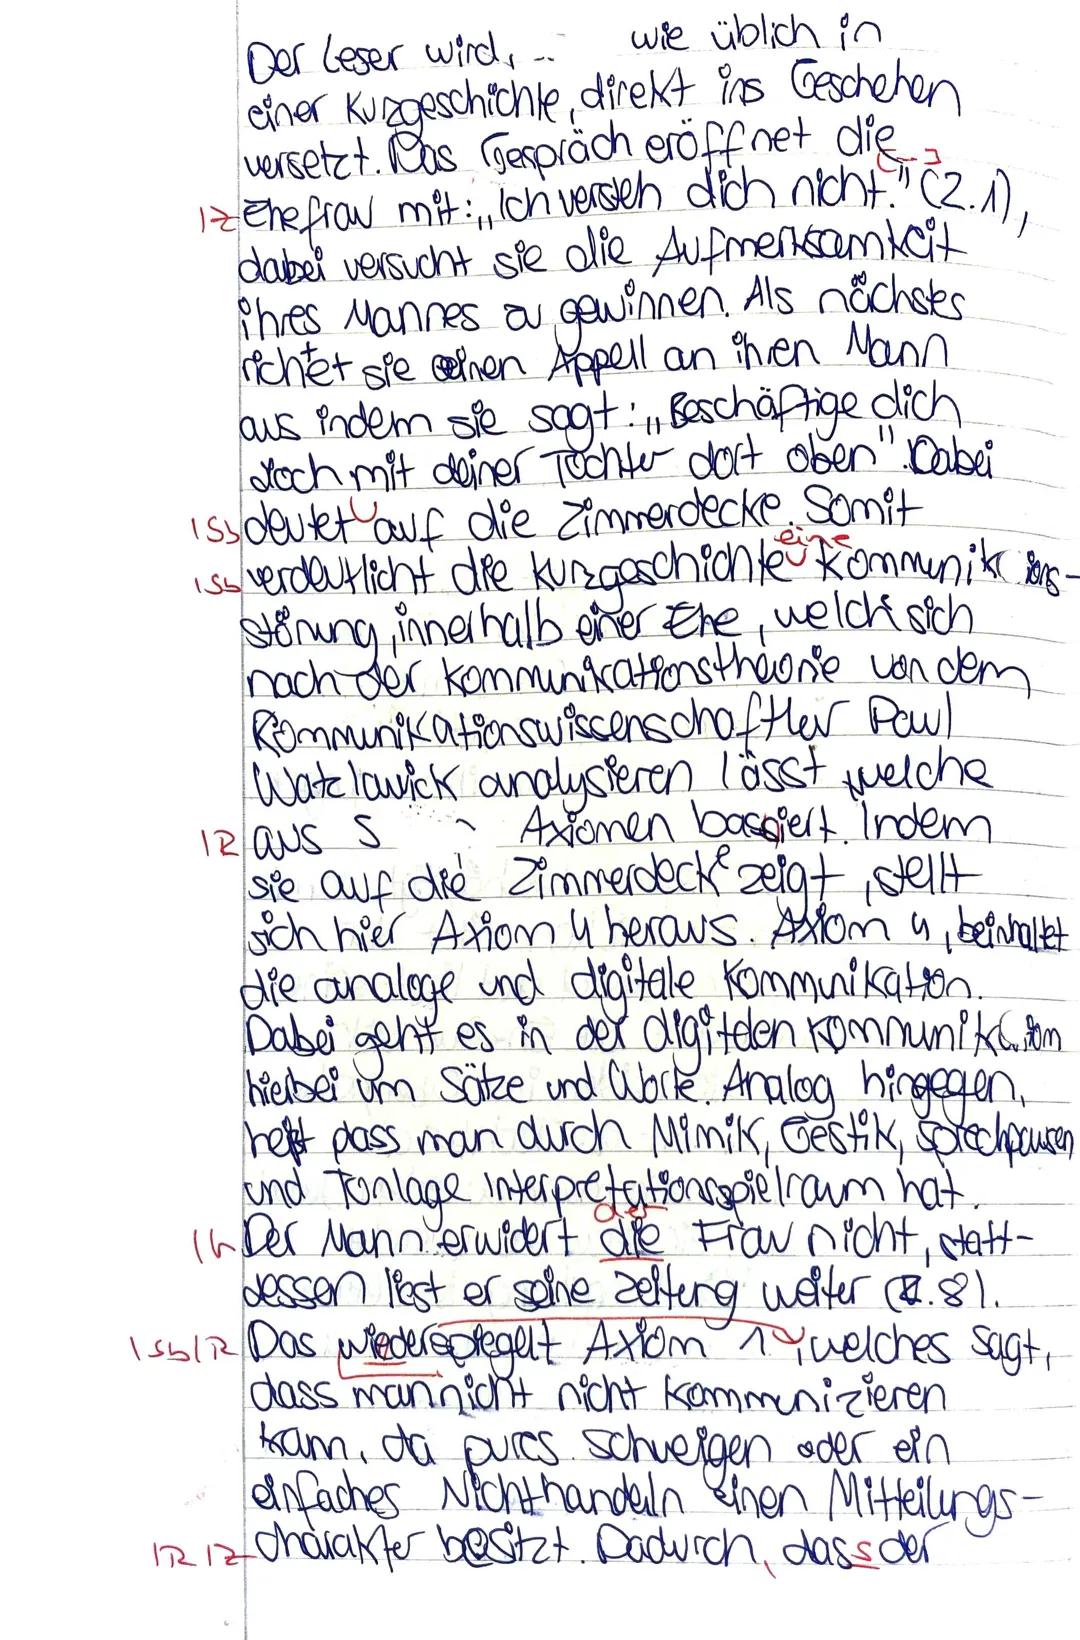 Der Leser wird, wie üblich in
einer Kurzgeschichte, direkt ins Geschehen
versetzt. Das Gespräch eröffnet die
[-]
1Z Ehefrau mit: „Ich versteh dich nicht." (Z.1),
dabei versucht sie die Aufmerksamkeit
ihres Mannes zu gewinnen. Als nächstes
richtet sie einen Appell an ihren Mann
aus indem sie sagt: „Beschäftige dich
doch mit deiner Tochter dort oben". Dabei
1Sb deutet auf die Zimmerdecke. Somit
eine
1Sb verdeutlicht die Kurzgeschichte Kommunik ions-
störung, innerhalb einer Ehe, welch sich
nach der Kommunikationstheorie von dem
Kommunikationswissenschaftler Paul
Watzlawick analysieren lässt welche
1R aus 5 Axiomen bassiert. Indem
sie auf die Zimmerdecke zeigt, stellt
sich hier Axiom 4 heraus. Axiom 4, beinhaltet
die analoge und digitale Kommunikation.
Dabei geht es in der digitalen Kommunik ion
hierbei um Sätze und Worte. Analog hingegen,
heißt dass man durch Mimik, Gestik, Sprechpausen
und Tonlage Interpretationsspielraum hat.
der
1G Der Mann erwidert die Frau nicht, statt-
dessen liest er seine Zeitung weiter (Z.8).
1Sb/R Das wiederspiegelt Axiom 1, welches sagt,
dass man nicht nicht kommunizieren
kann, da pures schweigen oder ein
einfaches Nichthandeln einen Mitteilungs-
1R 1Z charakter besitzt. Dadurch, dass der